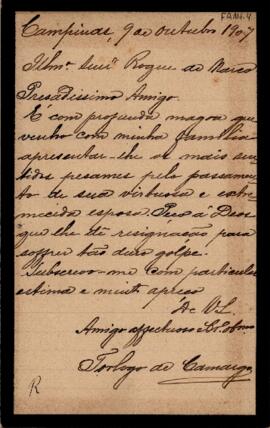 FAM.4
Campinas, 9 de Outubro 1907
Illmo. Snr. Roque de Marco
Presadissimo Amigo.
É com profunda magoa que
venho com minha familia
apresentar-lhe os mais sen-
tidos pesames pelo passamen-
to de sua virtuosa e extre-
mecida esposa. Peço á Deos
que lhe dê resignação para
soffrer tão duro golpe.
Subscrevo-me com particular
estima e muito apreço
De V.S.
Amigo affectuoso
Torlogo de Camargo
R